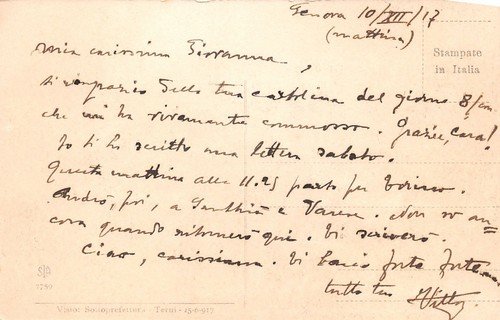 Genova 10/XII/17
(mattina)
Mia carissima Giovanna,
ti ringrazio della tua cartolina del giorno 8/
che mi ha vivamente commosso. Grazie, cara!
Io ti ho scritto una lettera sabato.
Questa mattina alle 11.25 parto per Torino.
Andrò, poi, a Santhià e Varese. Non so an=
cora quando ritornerò qui. Ti scriverò.
Ciao, carissima. Ti bacio forte forte
tutto tuo
Stampate
in Italia
7759
Visto: Sottoprefettura - Terni - 15-6-917